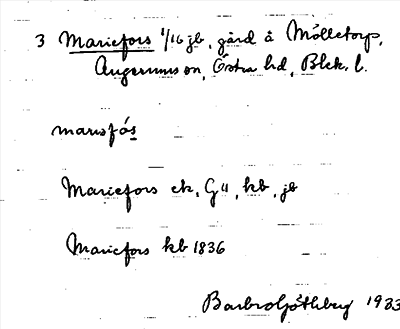 3 Mariefors 1/16 jb, gård å Mölletorp,
Augerums sn, Östra hd, Blek. l.
marisfós
Mariefors ek, G4, kb, jb
Mariefors kb 1836
Barbro Göthberg 1933